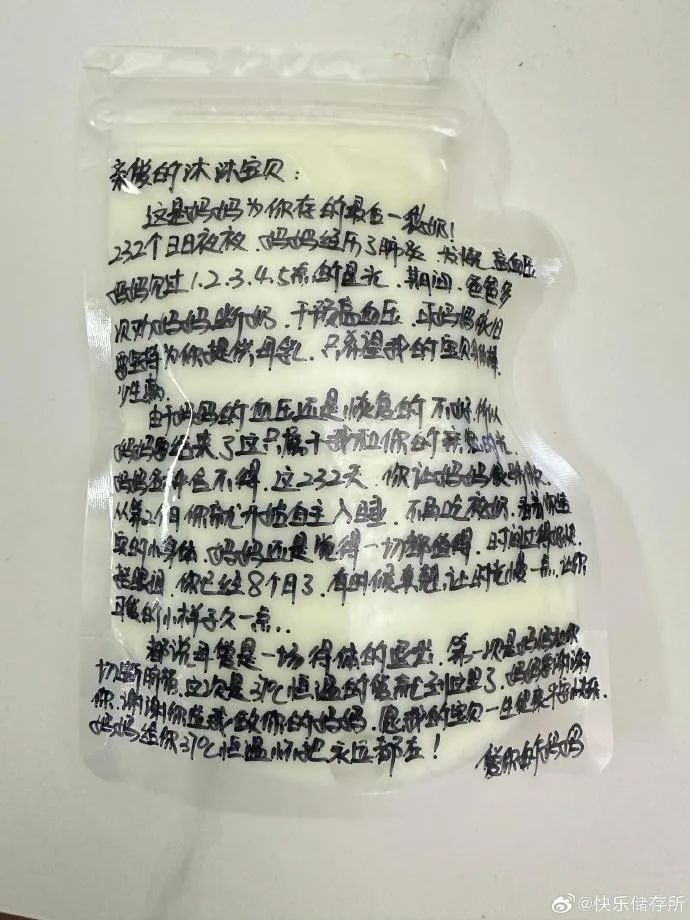 亲爱的沐沐宝贝：
这是妈妈为你存的最后一袋奶！
232个日日夜夜，妈妈经历了肺炎、发烧、高血压
妈妈见过1.2.3.4.5点的星光，期间，爸爸多
次劝妈妈断奶，干预高血压，可妈妈依旧
要坚持为你提供母乳，只希望我的宝贝
少生病
由于妈妈的血压还是恢复的不好，所以
妈妈要结束了这只属于我和你的亲密时光
妈妈多舍不得，这232天，你让妈妈很骄傲
从第2个月你就开始自主入睡，不再吃夜奶，看着你
的小身体，妈妈还是觉得一切都值得，时间过得好快
眨眼间，你已经8个月了，有时候真想让时光慢一点，让你
可爱的小样子久一点..
都说母爱是一场得体的退出，第一次是妈妈
切断脐带，这次是37℃恒温的爱就到这里了，妈妈谢谢
你，谢谢你选择我做你的妈妈，愿我的宝贝一生健康平安快乐
妈妈给你37℃恒温怀抱永远都在！
爱你的妈妈
@快乐储存所